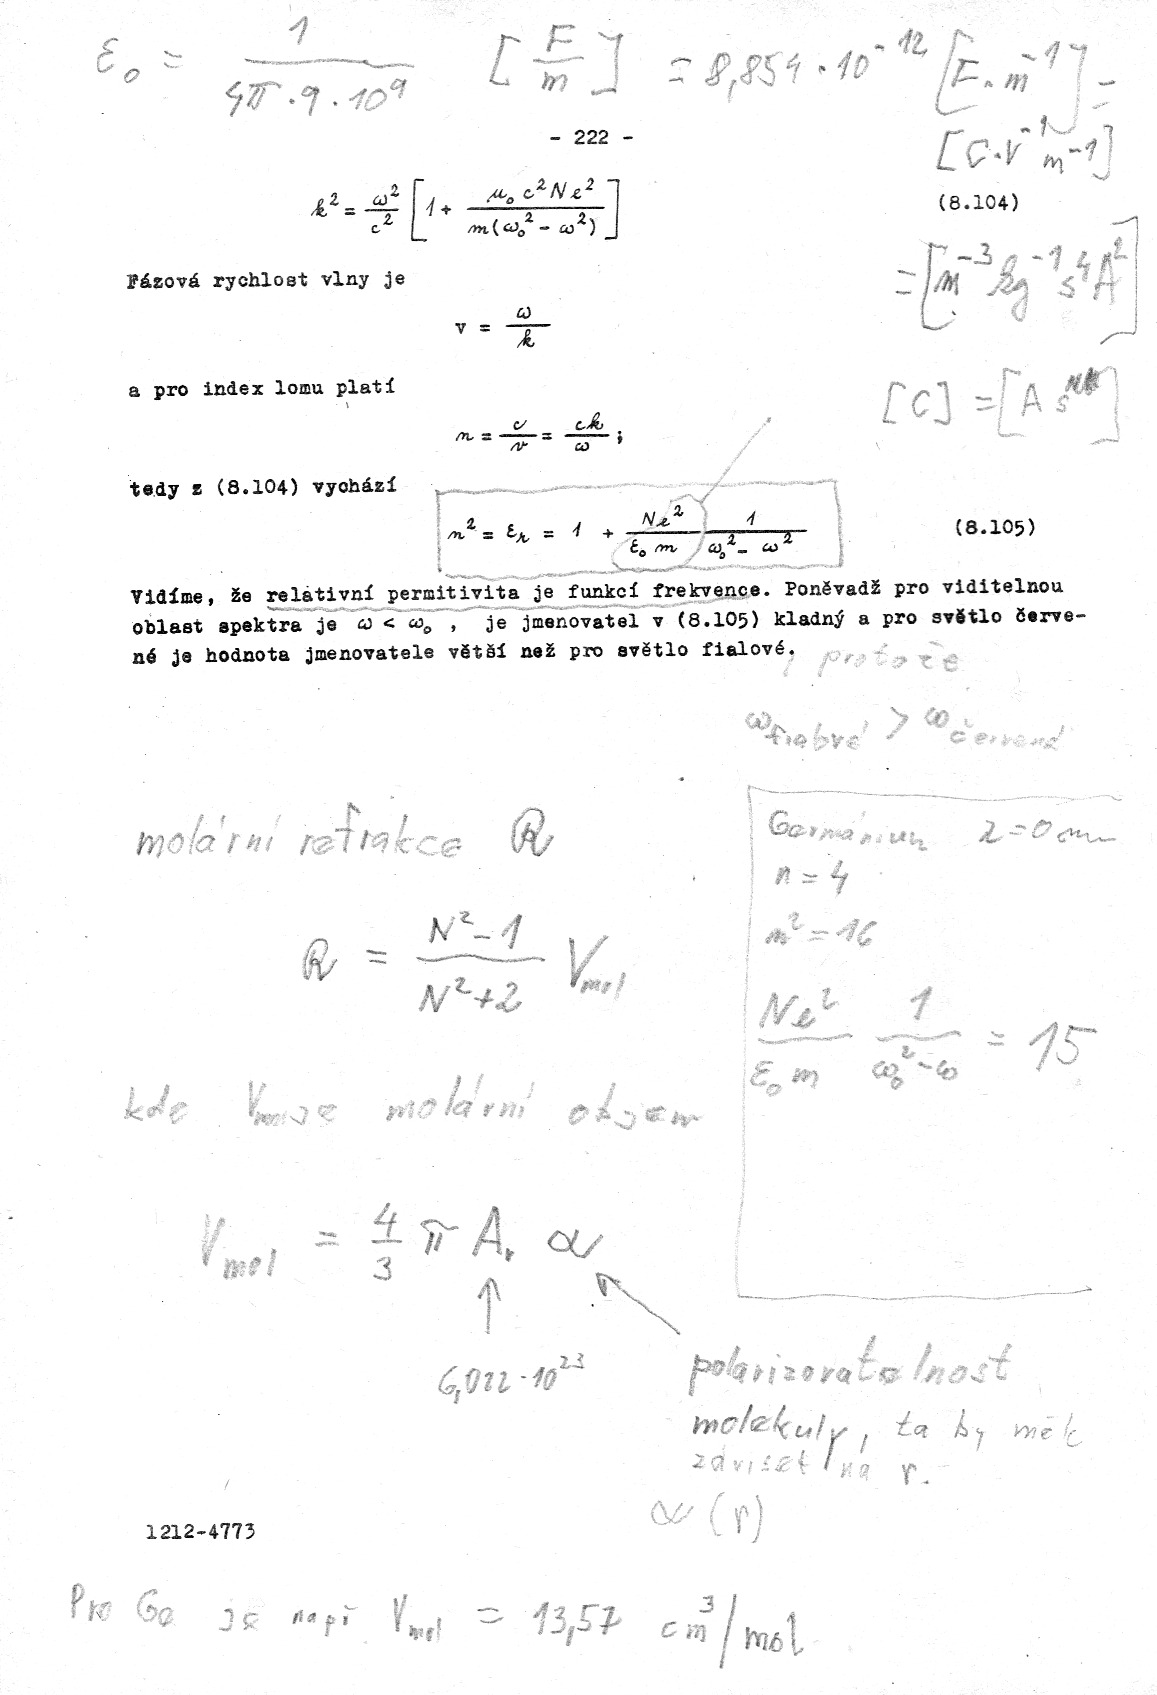 ε₀ = 1 / (4π · 9 · 10⁹) [F/m] = 8,854 · 10⁻¹² [F · m⁻¹] =
[C · V⁻¹ m⁻¹]
- 222 -
k² = ω²/c² [1 + μ₀ c² N e² / m(ω₀² - ω²)] (8.104)
= [m⁻³ kg⁻¹ s⁴ A²]
Fázová rychlost vlny je
v = ω/k
a pro index lomu platí
[C] = [A s]
n = c/v = ck/ω ;
tedy z (8.104) vychází
n² = εᵣ = 1 + Ne²/(ε₀ m) 1/(ω₀² - ω²) (8.105)
Vidíme, že relativní permitivita je funkcí frekvence. Poněvadž pro viditelnou
oblast spektra je ω < ω₀ , je jmenovatel v (8.105) kladný a pro světlo červe-
né je hodnota jmenovatele větší než pro světlo fialové.
, protože
ω fialové > ω červená
molární refrakce R
R = (N² - 1)/(N² + 2) V mol
kde V mol je molární objem
V mol = 4/3 π A. α
6,022 · 10²³
polarizovatelnost
molekuly, ta by měla
záviset na r.
α (r)
Germánium λ = 0
n = 4
n² = 16
Ne²/(ε₀ m) 1/(ω₀² - ω) = 15
1212-4773
Pro Ge je např V mol = 13,57 cm³/mol